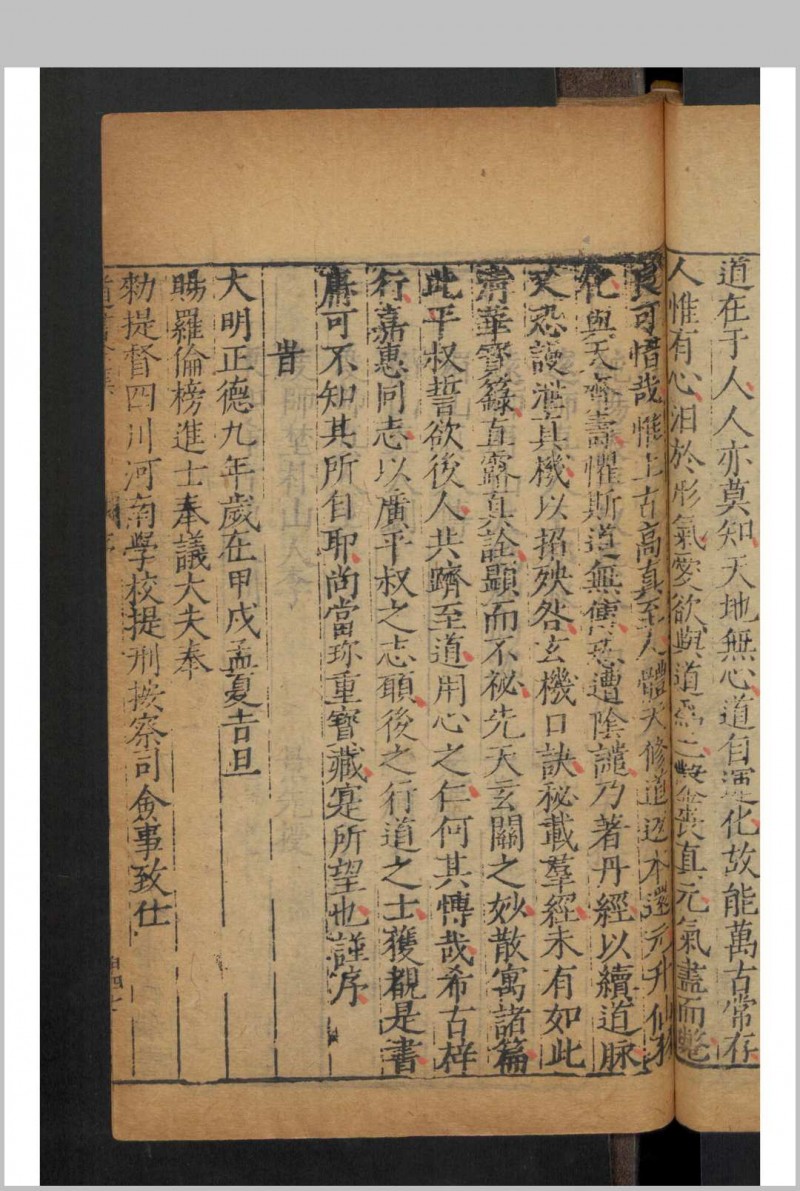 道在于人人亦莫知天地無心道自運化故能萬古常存
人惟有心汨於形氣愛欲與道爲二鑿喪真元氣盡而斃
良可惜哉惟上古高真至人體天修道返本還元升仙
化與天齊壽懼斯道無傳恐遭陰譴乃著丹經以續道脉
又恐謾泄真機以招殃咎玄機口訣秘載羣經未有如此
清華寳籙直露真詮顯而不祕先天玄關之妙散寓諸篇
此平叔誓欲後人共躋至道用心之仁何其慱哉希古梓
行嘉惠同志以廣平叔之志頋後之行道之士獲覩是書
庸可不知其所自耶尚當珎重寳藏寔所望也謹序
旹
大明正德九年歲在甲戌孟夏吉旦
賜羅倫榜進士奉議大夫奉
勅提督四川河南學校提刑按察司僉事致仕